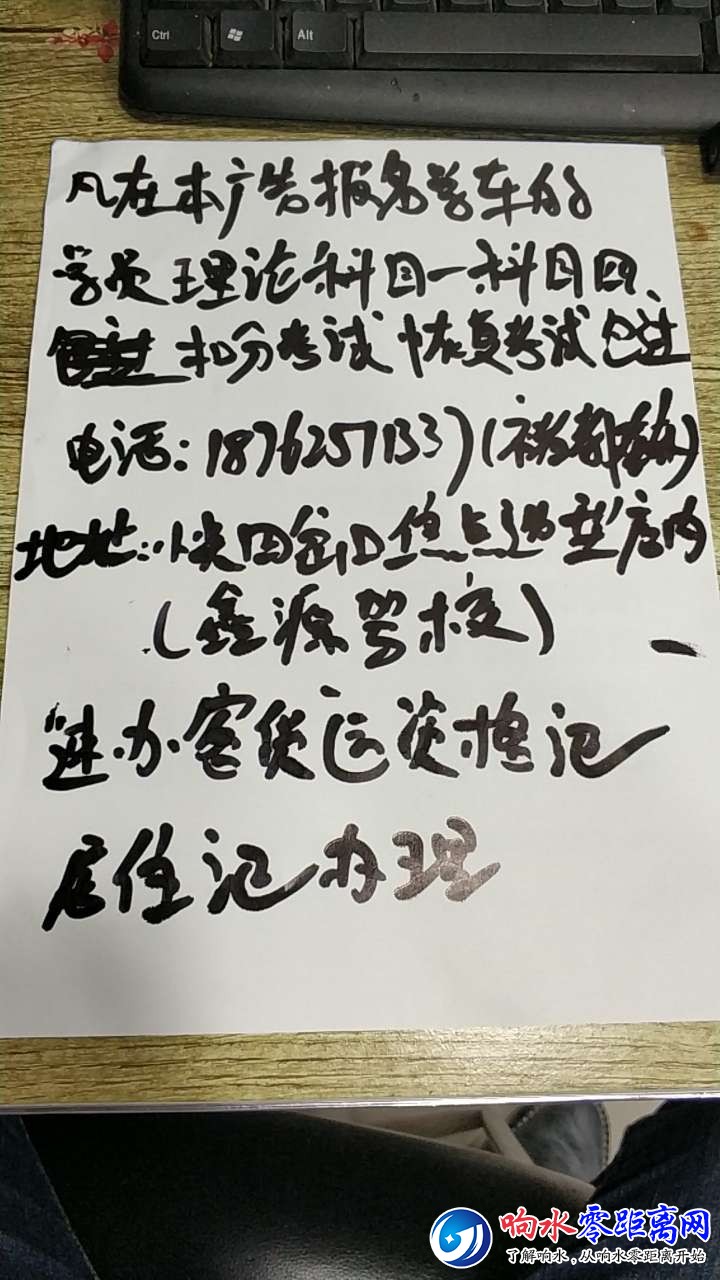 Ctrl Alt
凡在本广告报名学车的
学员理论科目一科目四、
扣分考试恢复考试包过
电话:18762571337(
地址:小尖田岔口焦点造型店内
(鑫源驾校)
速办客货运资格证
居住证办理
响水零距离网
了解响水,从响水零距离开始